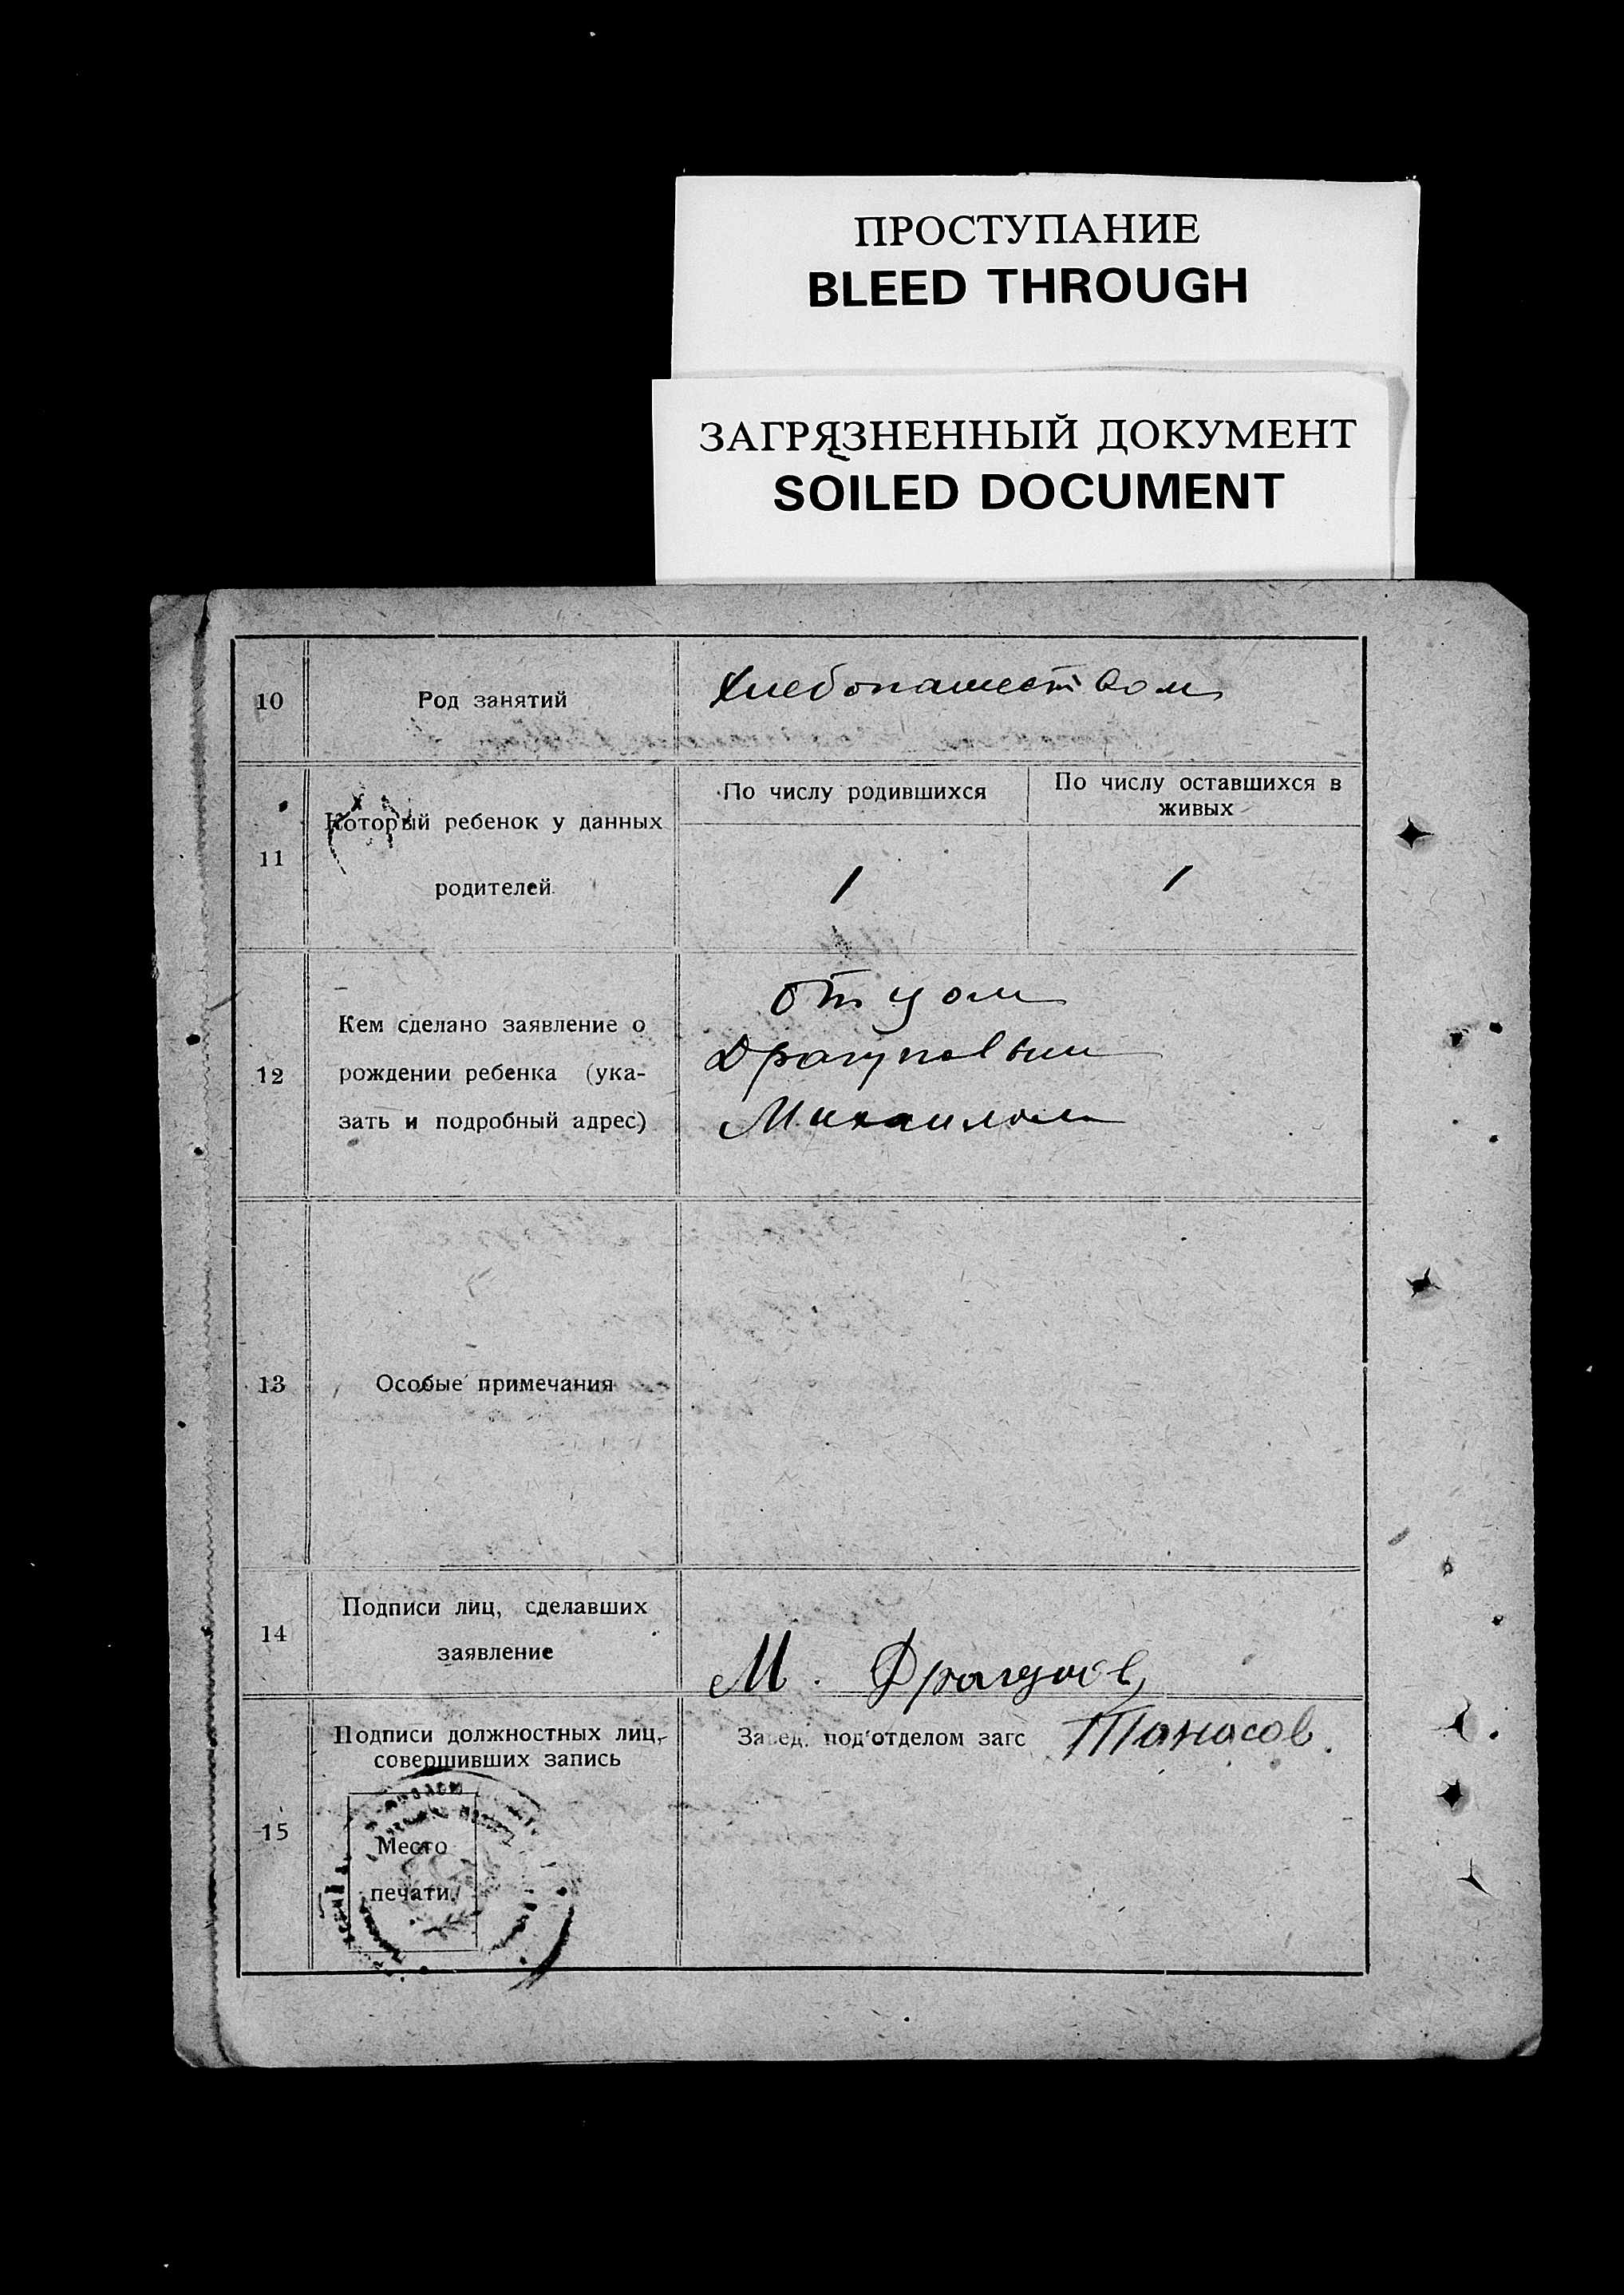 ПРОСТУПАНИЕ
BLEED THROUGH
ЗАГРЯЗНЕННЫЙ ДОКУМЕНТ
SOILED DOCUMENT
10
Род занятий
Хлебопашеством
11
Который ребенок у данных
родителей
По числу родившихся
По числу оставшихся в
живых
1
1
12
Кем сделано заявление о
рождении ребенка (ука-
зать и подробный адрес)
отцом
Драгуновым
Михаилом
13
Особые примечания
14
Подписи лиц, сделавших
заявление
М.
15
Подписи должностных лиц,
совершивших запись
Место
печати
Завед. подотделом загс